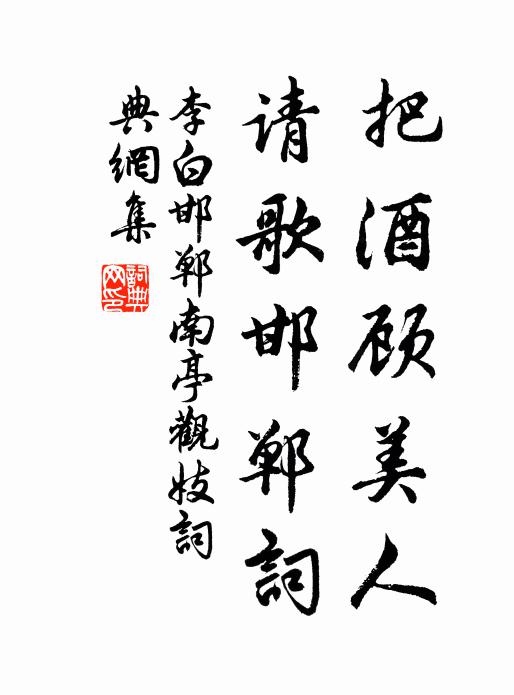 把酒顾美人
请歌邯郸詞
李白邯鄲南亭觀妓詞
典網集
詞典网印